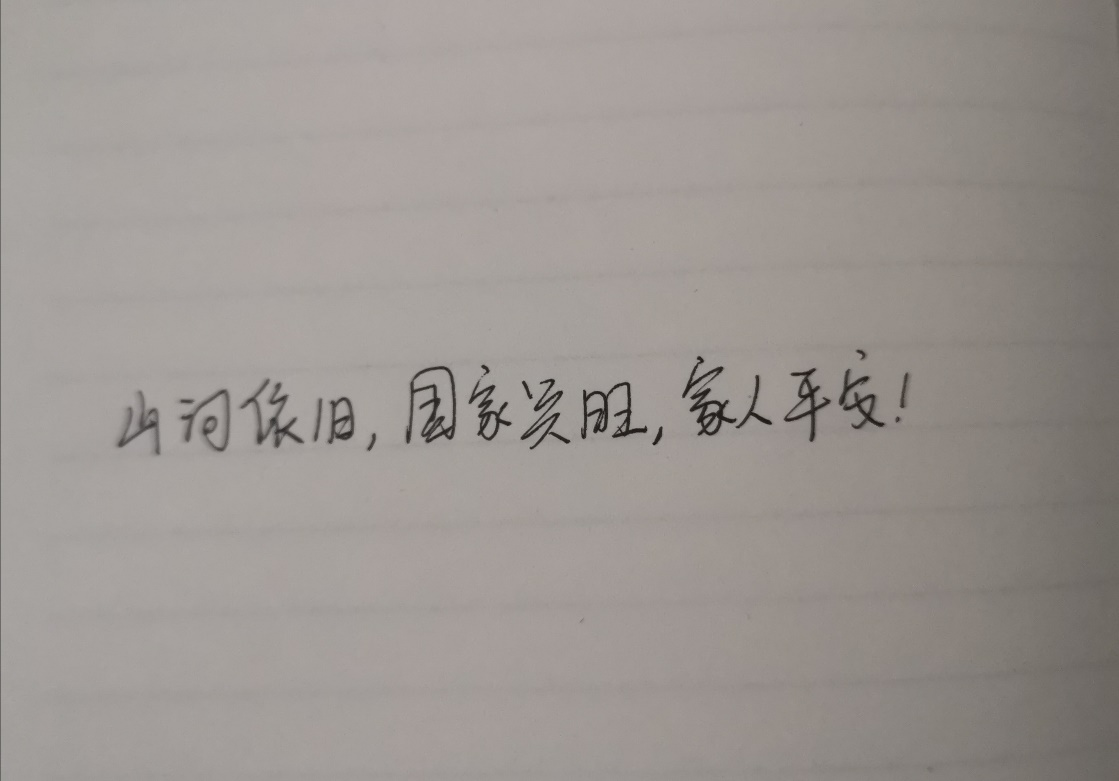 山河依旧，国家兴旺，家人平安！